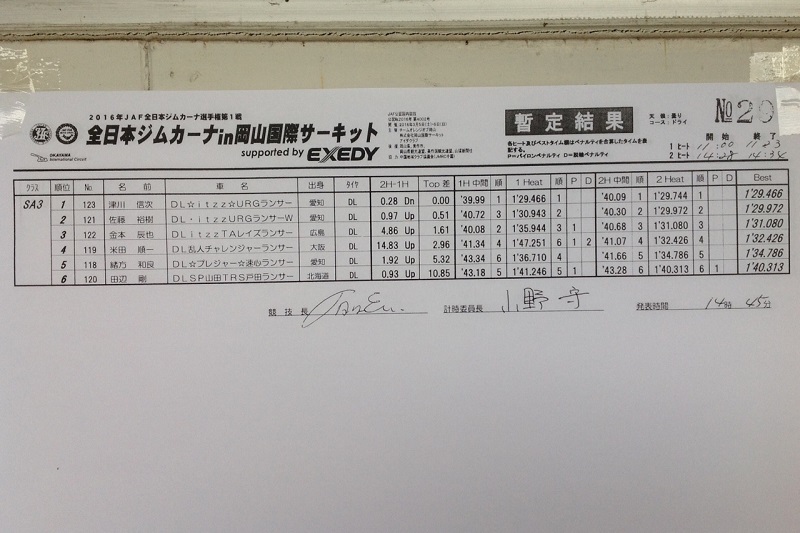 2016年JAF全日本ジムカーナ選手権第1戦
全日本ジムカーナin岡山国際サーキット
supported by EXEDY
OKAYAMA International Circuit
暫定結果
天候:曇り
コース:ドライ
No 20
開始 終了
1ヒート 11:00 11:23
2ヒート 14:28 14:34
各ヒート及びベストタイム順はペナルティを合算したタイムを表記する。
P=パイロンペナルティ D=脱輪ペナルティ
クラス 順位 No 名前 車名 出身 タイヤ 2H-1H Top差 1H中間 順 1 Heat 順 P D 2H中間 順 2 Heat 順 P D Best
SA3 1 123 津川 信次 DL☆itzz☆URGランサー 愛知 DL 0.28 Dn 0.00 '39.99 1 1'29.466 1 '40.09 1 1'29.744 1 1'29.466
2 121 佐藤 裕樹 DL・itzzURGランサーW 愛知 DL 0.97 Up 0.51 '40.72 3 1'30.943 2 '40.30 2 1'29.972 2 1'29.972
3 122 金本 辰也 DLitzzTAレイズランサー 広島 DL 4.86 Up 1.61 '40.08 2 1'35.944 3 1 '40.68 3 1'31.080 3 1'31.080
4 119 米田 順一 DL乱人チャレンジャーランサー 大阪 DL 14.83 Up 2.96 '41.34 4 1'47.251 6 1 2 '41.07 4 1'32.426 4 1'32.426
5 118 緒方 和良 DL☆プレジャー☆速心ランサー 愛知 DL 1.92 Up 5.32 '43.34 6 1'36.710 4 '41.66 5 1'34.786 5 1'34.786
6 120 田辺 剛 DLSP山田TRS戸田ランサー 北海道 DL 0.93 Up 10.85 '43.18 5 1'41.246 5 1 '43.28 6 1'40.313 6 1 1'40.313
競技長 計時委員長 小野 守 発表時間 14時 45分